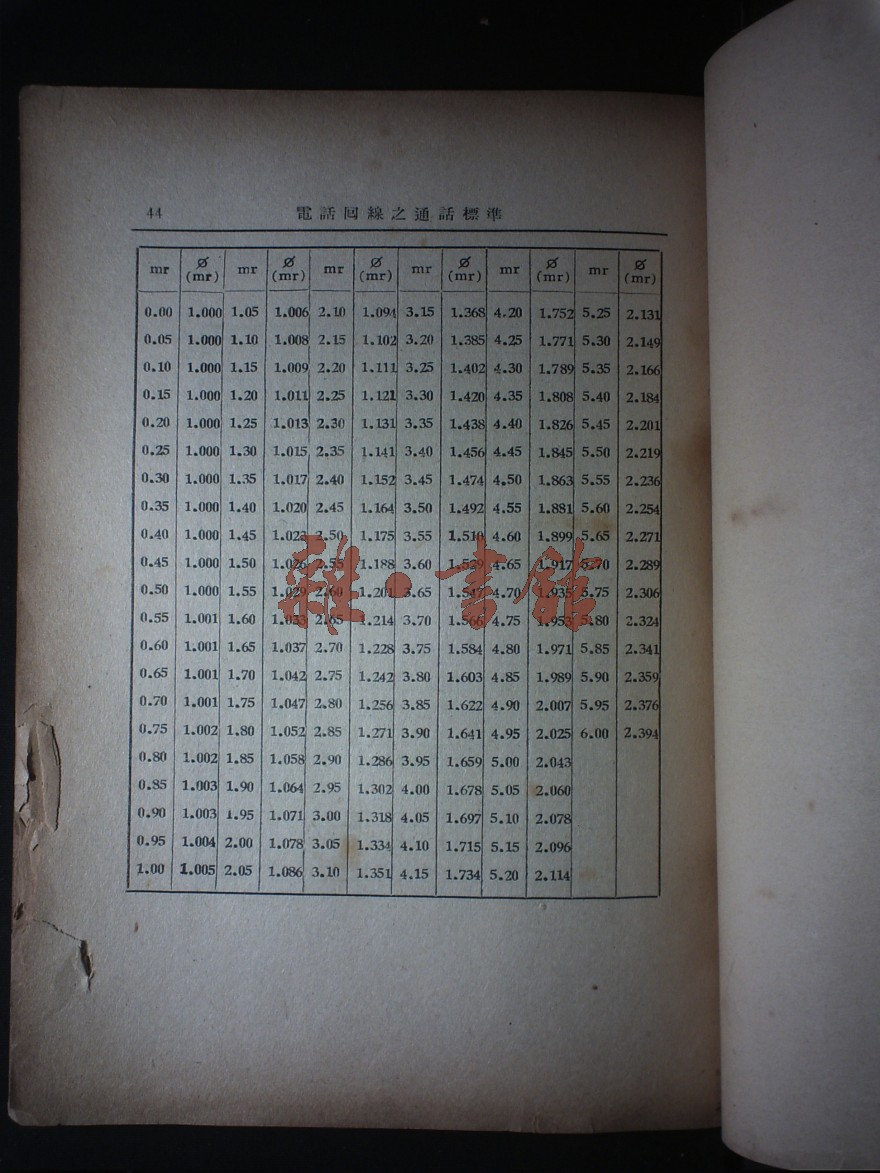 44 電話回線之通話標準
mr ∅(mr) mr ∅(mr) mr ∅(mr) mr ∅(mr) mr ∅(mr) mr ∅(mr)
0.00 1.000 1.05 1.006 2.10 1.094 3.15 1.368 4.20 1.752 5.25 2.131
0.05 1.000 1.10 1.008 2.15 1.102 3.20 1.385 4.25 1.771 5.30 2.149
0.10 1.000 1.15 1.009 2.20 1.111 3.25 1.402 4.30 1.789 5.35 2.166
0.15 1.000 1.20 1.011 2.25 1.121 3.30 1.420 4.35 1.808 5.40 2.184
0.20 1.000 1.25 1.013 2.30 1.131 3.35 1.438 4.40 1.826 5.45 2.201
0.25 1.000 1.30 1.015 2.35 1.141 3.40 1.456 4.45 1.845 5.50 2.219
0.30 1.000 1.35 1.017 2.40 1.152 3.45 1.474 4.50 1.863 5.55 2.236
0.35 1.000 1.40 1.020 2.45 1.164 3.50 1.492 4.55 1.881 5.60 2.254
0.40 1.000 1.45 1.023 2.50 1.175 3.55 1.510 4.60 1.899 5.65 2.271
0.45 1.000 1.50 1.026 2.55 1.188 3.60 1.529 4.65 1.917 5.70 2.289
0.50 1.000 1.55 1.029 2.60 1.201 3.65 1.547 4.70 1.935 5.75 2.306
0.55 1.001 1.60 1.033 2.65 1.214 3.70 1.566 4.75 1.953 5.80 2.324
0.60 1.001 1.65 1.037 2.70 1.228 3.75 1.584 4.80 1.971 5.85 2.341
0.65 1.001 1.70 1.042 2.75 1.242 3.80 1.603 4.85 1.989 5.90 2.359
0.70 1.001 1.75 1.047 2.80 1.256 3.85 1.622 4.90 2.007 5.95 2.376
0.75 1.002 1.80 1.052 2.85 1.271 3.90 1.641 4.95 2.025 6.00 2.394
0.80 1.002 1.85 1.058 2.90 1.286 3.95 1.659 5.00 2.043
0.85 1.003 1.90 1.064 2.95 1.302 4.00 1.678 5.05 2.060
0.90 1.003 1.95 1.071 3.00 1.318 4.05 1.697 5.10 2.078
0.95 1.004 2.00 1.078 3.05 1.334 4.10 1.715 5.15 2.096
1.00 1.005 2.05 1.086 3.10 1.351 4.15 1.734 5.20 2.114
雜·書館